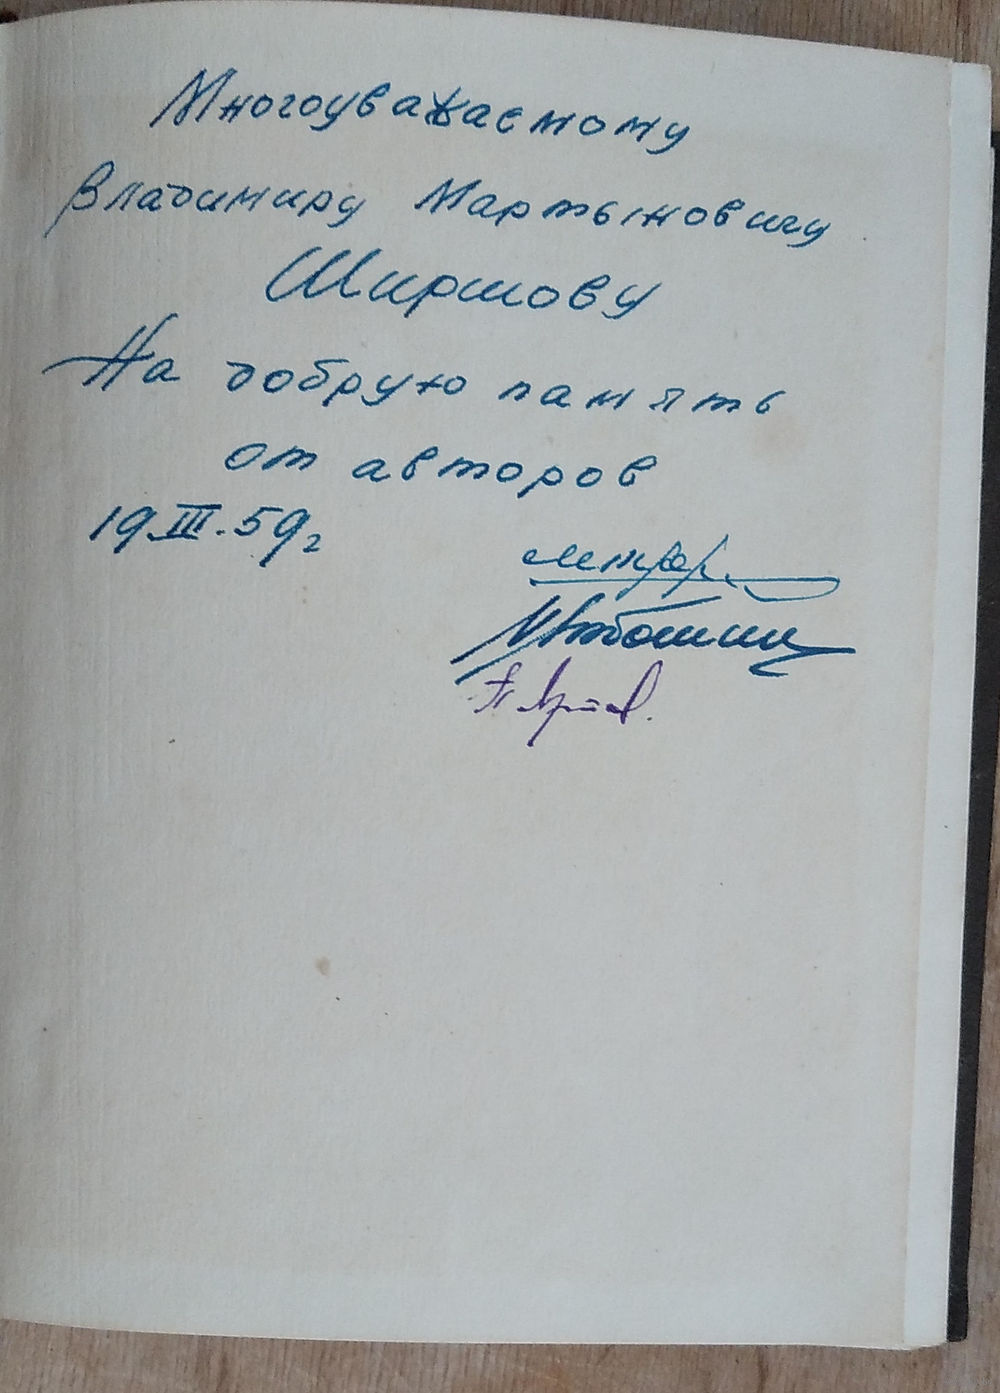 Многоуважаемому
Владимиру Мартыновичу
Ширшову
На добрую память
от авторов
19.III.59г